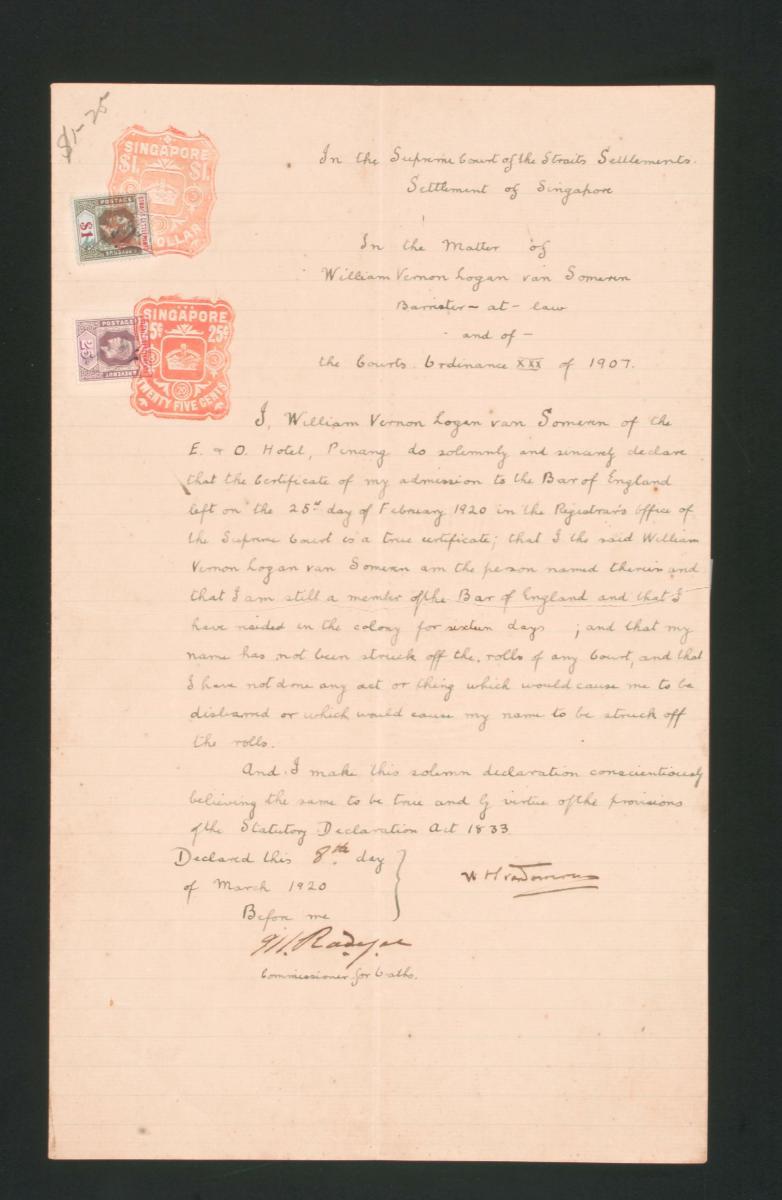 $1-25
SINGAPORE
$1. $1.
DOLLAR
POSTAGE
$1
REVENUE
SINGAPORE
25c 25c
TWENTY FIVE CENTS
POSTAGE
25c
REVENUE
In the Supreme Court of the Straits Settlements.
Settlement of Singapore
In the Matter of
William Vernon Logan van Someren
Barrister-at-law
and of -
the Courts Ordinance XXX of 1907.
I, William Vernon Logan van Someren of the
E. & O. Hotel, Penang do solemnly and sincerely declare
that the Certificate of my admission to the Bar of England
left on the 25th day of February 1920 in the Registrar's office of
the Supreme Court is a true certificate; that I the said William
Vernon Logan van Someren am the person named therein and
that I am still a member of the Bar of England and that I
have resided in the colony for sixteen days ; and that my
name has not been struck off the rolls of any Court, and that
I have not done any act or thing which would cause me to be
disbarred or which would cause my name to be struck off
the rolls.
And I make this solemn declaration conscientiously
believing the same to be true and by virtue of the provisions
of the Statutory Declaration Act 1833
Declared this 8th day
of March 1920
van Someren
Before me
Commissioner for Oaths.